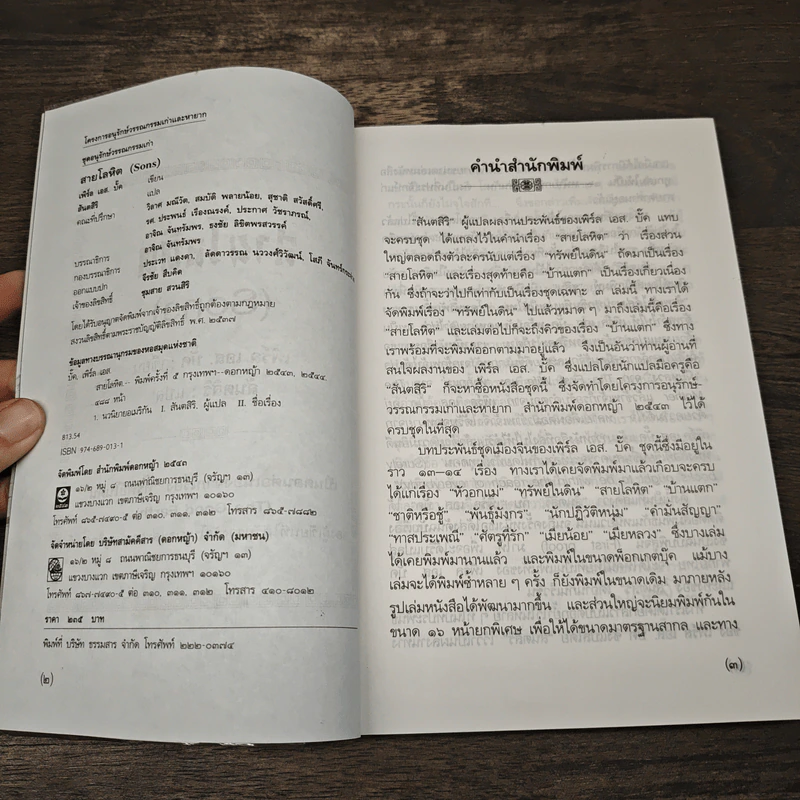 โครงการอนุรักษ์วรรณกรรมเก่าและหายาก
ชุดอนุรักษ์วรรณกรรมเก่า
สายโลหิต (Sons)
เพิร์ล เอส. บั๊ค เขียน
สันตสิริ แปล
คณะที่ปรึกษา วิลาศ มณีวัต, สมบัติ พลายน้อย, สุชาติ สวัสดิ์ศรี,
รศ. ประพนธ์ เรืองณรงค์, ประกาศ วัชราภรณ์,
อาจิณ จันทรัมพร, ธงชัย ลิขิตพรสวรรค์
บรรณาธิการ อาจิณ จันทรัมพร
กองบรรณาธิการ ประเวท แดงดา, ลัดดาวรรณ นววงศ์วิวัฒน์, โสภี จันทร์
ออกแบบปก จีรชัย สืบคิด
เจ้าของลิขสิทธิ์ ชุมสาย สวนสิริ
โดยได้รับอนุญาตจัดพิมพ์จากเจ้าของลิขสิทธิ์ถูกต้องตามกฎหมาย
สงวนลิขสิทธิ์ตามพระราชบัญญัติลิขสิทธิ์ พ.ศ. ๒๕๓๗
ข้อมูลทางบรรณานุกรมของหอสมุดแห่งชาติ
บั๊ค, เพิร์ล เอส.
สายโลหิต.-- พิมพ์ครั้งที่ ๕ กรุงเทพฯ--ดอกหญ้า ๒๕๔๓, ๒๕๔๔.
๔๘๘ หน้า
1. นวนิยายอเมริกัน I. สันตสิริ, ผู้แปล II. ชื่อเรื่อง
813.54
ISBN 974-689-013-1
จัดพิมพ์โดย สำนักพิมพ์ดอกหญ้า ๒๕๔๓
๑๖/๒ หมู่ ๘ ถนนพาณิชยการธนบุรี (จรัญฯ ๑๓)
แขวงบางแวก เขตภาษีเจริญ กรุงเทพฯ ๑๐๑๖๐
โทรศัพท์ ๘๖๕-๗๔๙๐-๕ ต่อ ๓๑๐, ๓๑๑, ๓๑๒ โทรสาร ๘๖๕-๗๘๘๒
จัดจำหน่ายโดย บริษัทสามัคคีสาร (ดอกหญ้า) จำกัด (มหาชน)
๑๖/๒ หมู่ ๘ ถนนพาณิชยการธนบุรี (จรัญฯ ๑๓)
แขวงบางแวก เขตภาษีเจริญ กรุงเทพฯ ๑๐๑๖๐
โทรศัพท์ ๘๖๗-๗๔๙๐-๕ ต่อ ๓๑๐, ๓๑๑, ๓๑๒ โทรสาร ๔๑๐-๘๐๑๒
ราคา ๒๓๕ บาท
พิมพ์ที่ บริษัท ธรรมสาร จำกัด โทรศัพท์ ๒๒๒-๐๓๗๔
(๒)
คำนำสำนักพิมพ์
"สันตสิริ" ผู้แปลผลงานประพันธ์ของเพิร์ล เอส. บั๊ค แทบ
จะครบชุด ได้แถลงไว้ในคำนำเรื่อง "สายโลหิต" ว่า เรื่องส่วน
ใหญ่ตลอดถึงตัวละครนับแต่เรื่อง "ทรัพย์ในดิน" ถัดมาเป็นเรื่อง
"สายโลหิต" และเรื่องสุดท้ายคือ "บ้านแตก" เป็นเรื่องเกี่ยวเนื่อง
กัน ซึ่งถ้าจะว่าไปก็เท่ากับเป็นเรื่องชุดเฉพาะ ๓ เล่มนี้ ทางเราได้
จัดพิมพ์เรื่อง "ทรัพย์ในดิน" ไปแล้วหมาด ๆ มาถึงเล่มนี้คือเรื่อง
"สายโลหิต" และเล่มต่อไปก็จะถึงคิวของเรื่อง "บ้านแตก" ซึ่งทาง
เราพร้อมที่จะพิมพ์ออกตามมาอยู่แล้ว จึงเป็นอันว่าท่านผู้อ่านที่
สนใจผลงานของ เพิร์ล เอส. บั๊ค ซึ่งแปลโดยนักแปลมือครูคือ
"สันตสิริ" ก็จะหาซื้อหนังสือชุดนี้ ซึ่งจัดทำโดยโครงการอนุรักษ์-
วรรณกรรมเก่าและหายาก สำนักพิมพ์ดอกหญ้า ๒๕๔๓ ไว้ได้
ครบชุดในที่สุด
บทประพันธ์ชุดเมืองจีนของเพิร์ล เอส. บั๊ค ชุดนี้ซึ่งมีอยู่ใน
ราว ๑๓-๑๔ เรื่อง ทางเราได้เคยจัดพิมพ์มาแล้วเกือบจะครบ
ได้แก่เรื่อง "หัวอกแม่" "ทรัพย์ในดิน" "สายโลหิต" "บ้านแตก"
"ชาติหรือชู้" "พันธุ์มังกร" "นักปฏิวัติหนุ่ม" "คำมั่นสัญญา"
"ทาสประเพณี" "ศัตรูที่รัก" "เมียน้อย" "เมียหลวง" ซึ่งบางเล่ม
ได้เคยพิมพ์มานานแล้ว และพิมพ์ในขนาดพ็อกเกตบุ๊ค แม้บาง
เล่มจะได้พิมพ์ซ้ำหลาย ๆ ครั้ง ก็ยังพิมพ์ในขนาดเดิม มาภายหลัง
รูปเล่มหนังสือได้พัฒนามากขึ้น และส่วนใหญ่จะนิยมพิมพ์กันใน
ขนาด ๑๖ หน้ายกพิเศษ เพื่อให้ได้ขนาดมาตรฐานสากล และทาง
(๓)